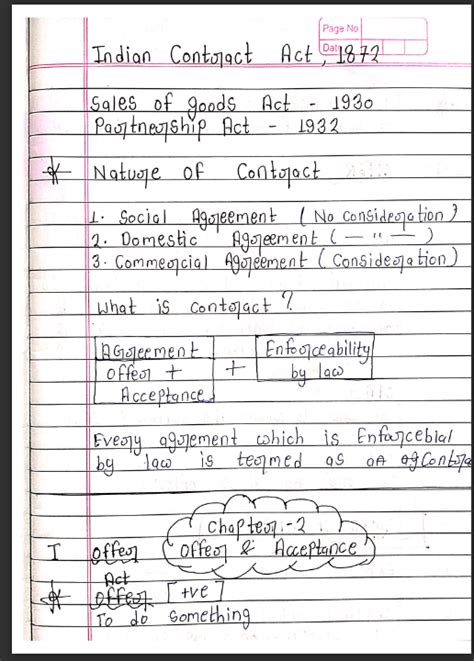 Page No
Date
Indian Contract Act, 1872
Sales of goods Act - 1930
Partnership Act - 1932
Nature of Contract
1. Social Agreement ( No consideration )
2. Domestic Agreement ( — " — )
3. Commercial Agreement ( Consideration )
What is contract ?
AGreement + Enforceability
offer + by law
Acceptance
Every agrement which is Enfarcebial
by law is termed as a Contra
Chapter :- 2
I offer Offer & Acceptance
Act
offer [+ve]
To do something